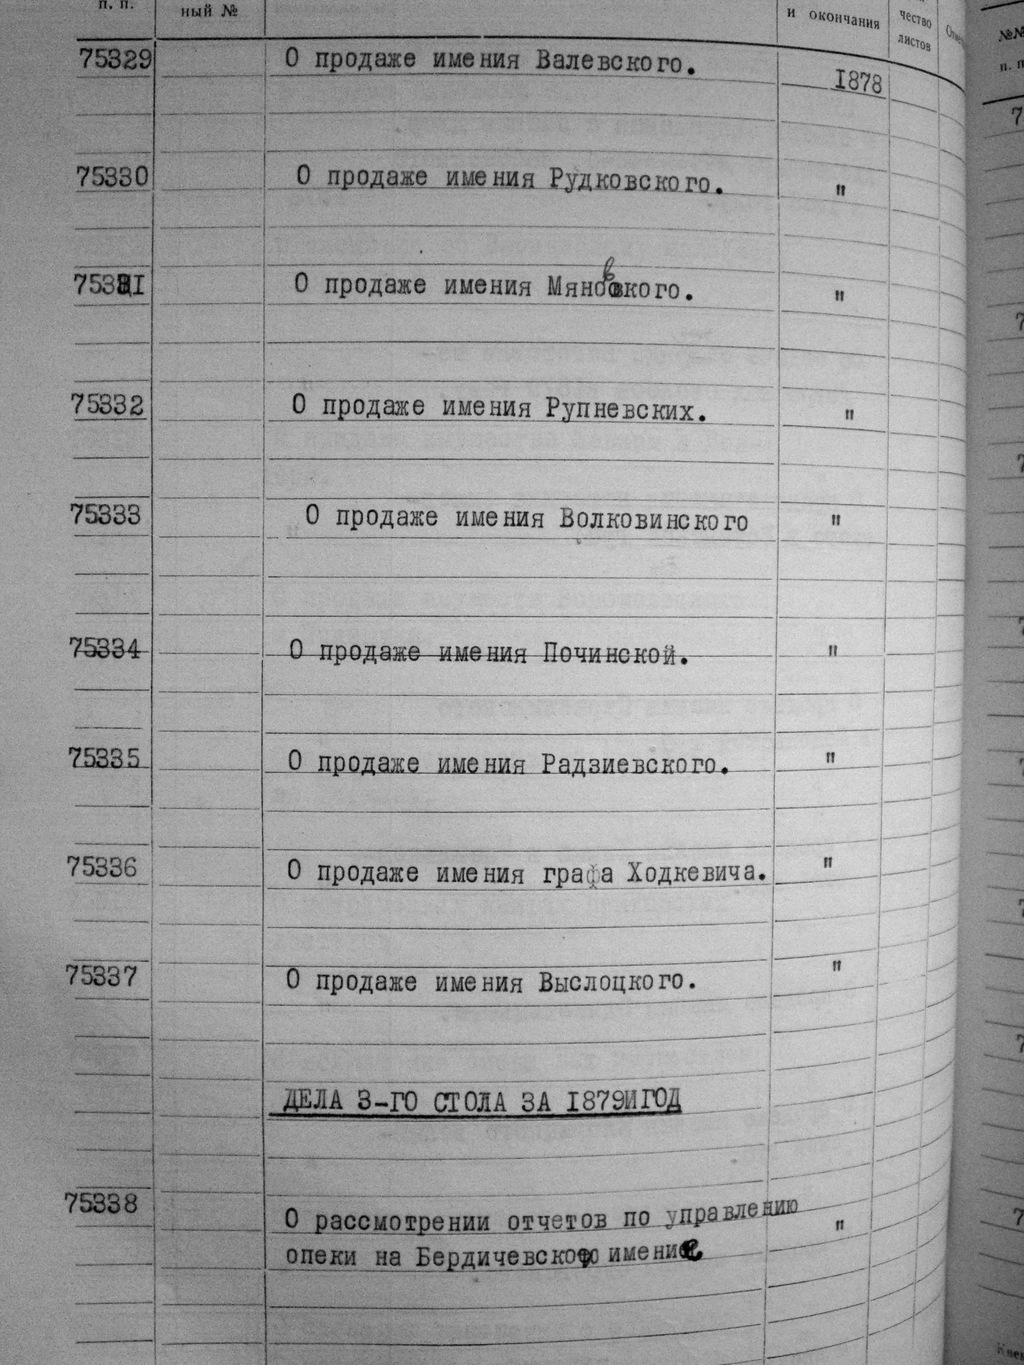 п. п. ный № и окончания чество листов №№ п. п.
75329 О продаже имения Валевского. 1878
75330 О продаже имения Рудковского. "
75331 О продаже имения Мяновского. "
75332 О продаже имения Рупневских. "
75333 О продаже имения Волковинского "
75334 О продаже имения Починской. "
75335 О продаже имения Радзиевского. "
75336 О продаже имения графа Ходкевича. "
75337 О продаже имения Выслоцкого. "
ДЕЛА 3-ГО СТОЛА ЗА 1879 ГОД
75338 О рассмотрении отчетов по управлению "
опеки на Бердичевское имение